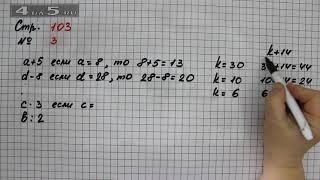 4 da 5.ru
Стр. 103
№ 3
k+14
a+5 если a=8, то 8+5=13
k=30 3 +14=44
d-8 если d=28, то 28-8=20
k=10 10 14=24
k=6 6
c·3 если c=
b:2